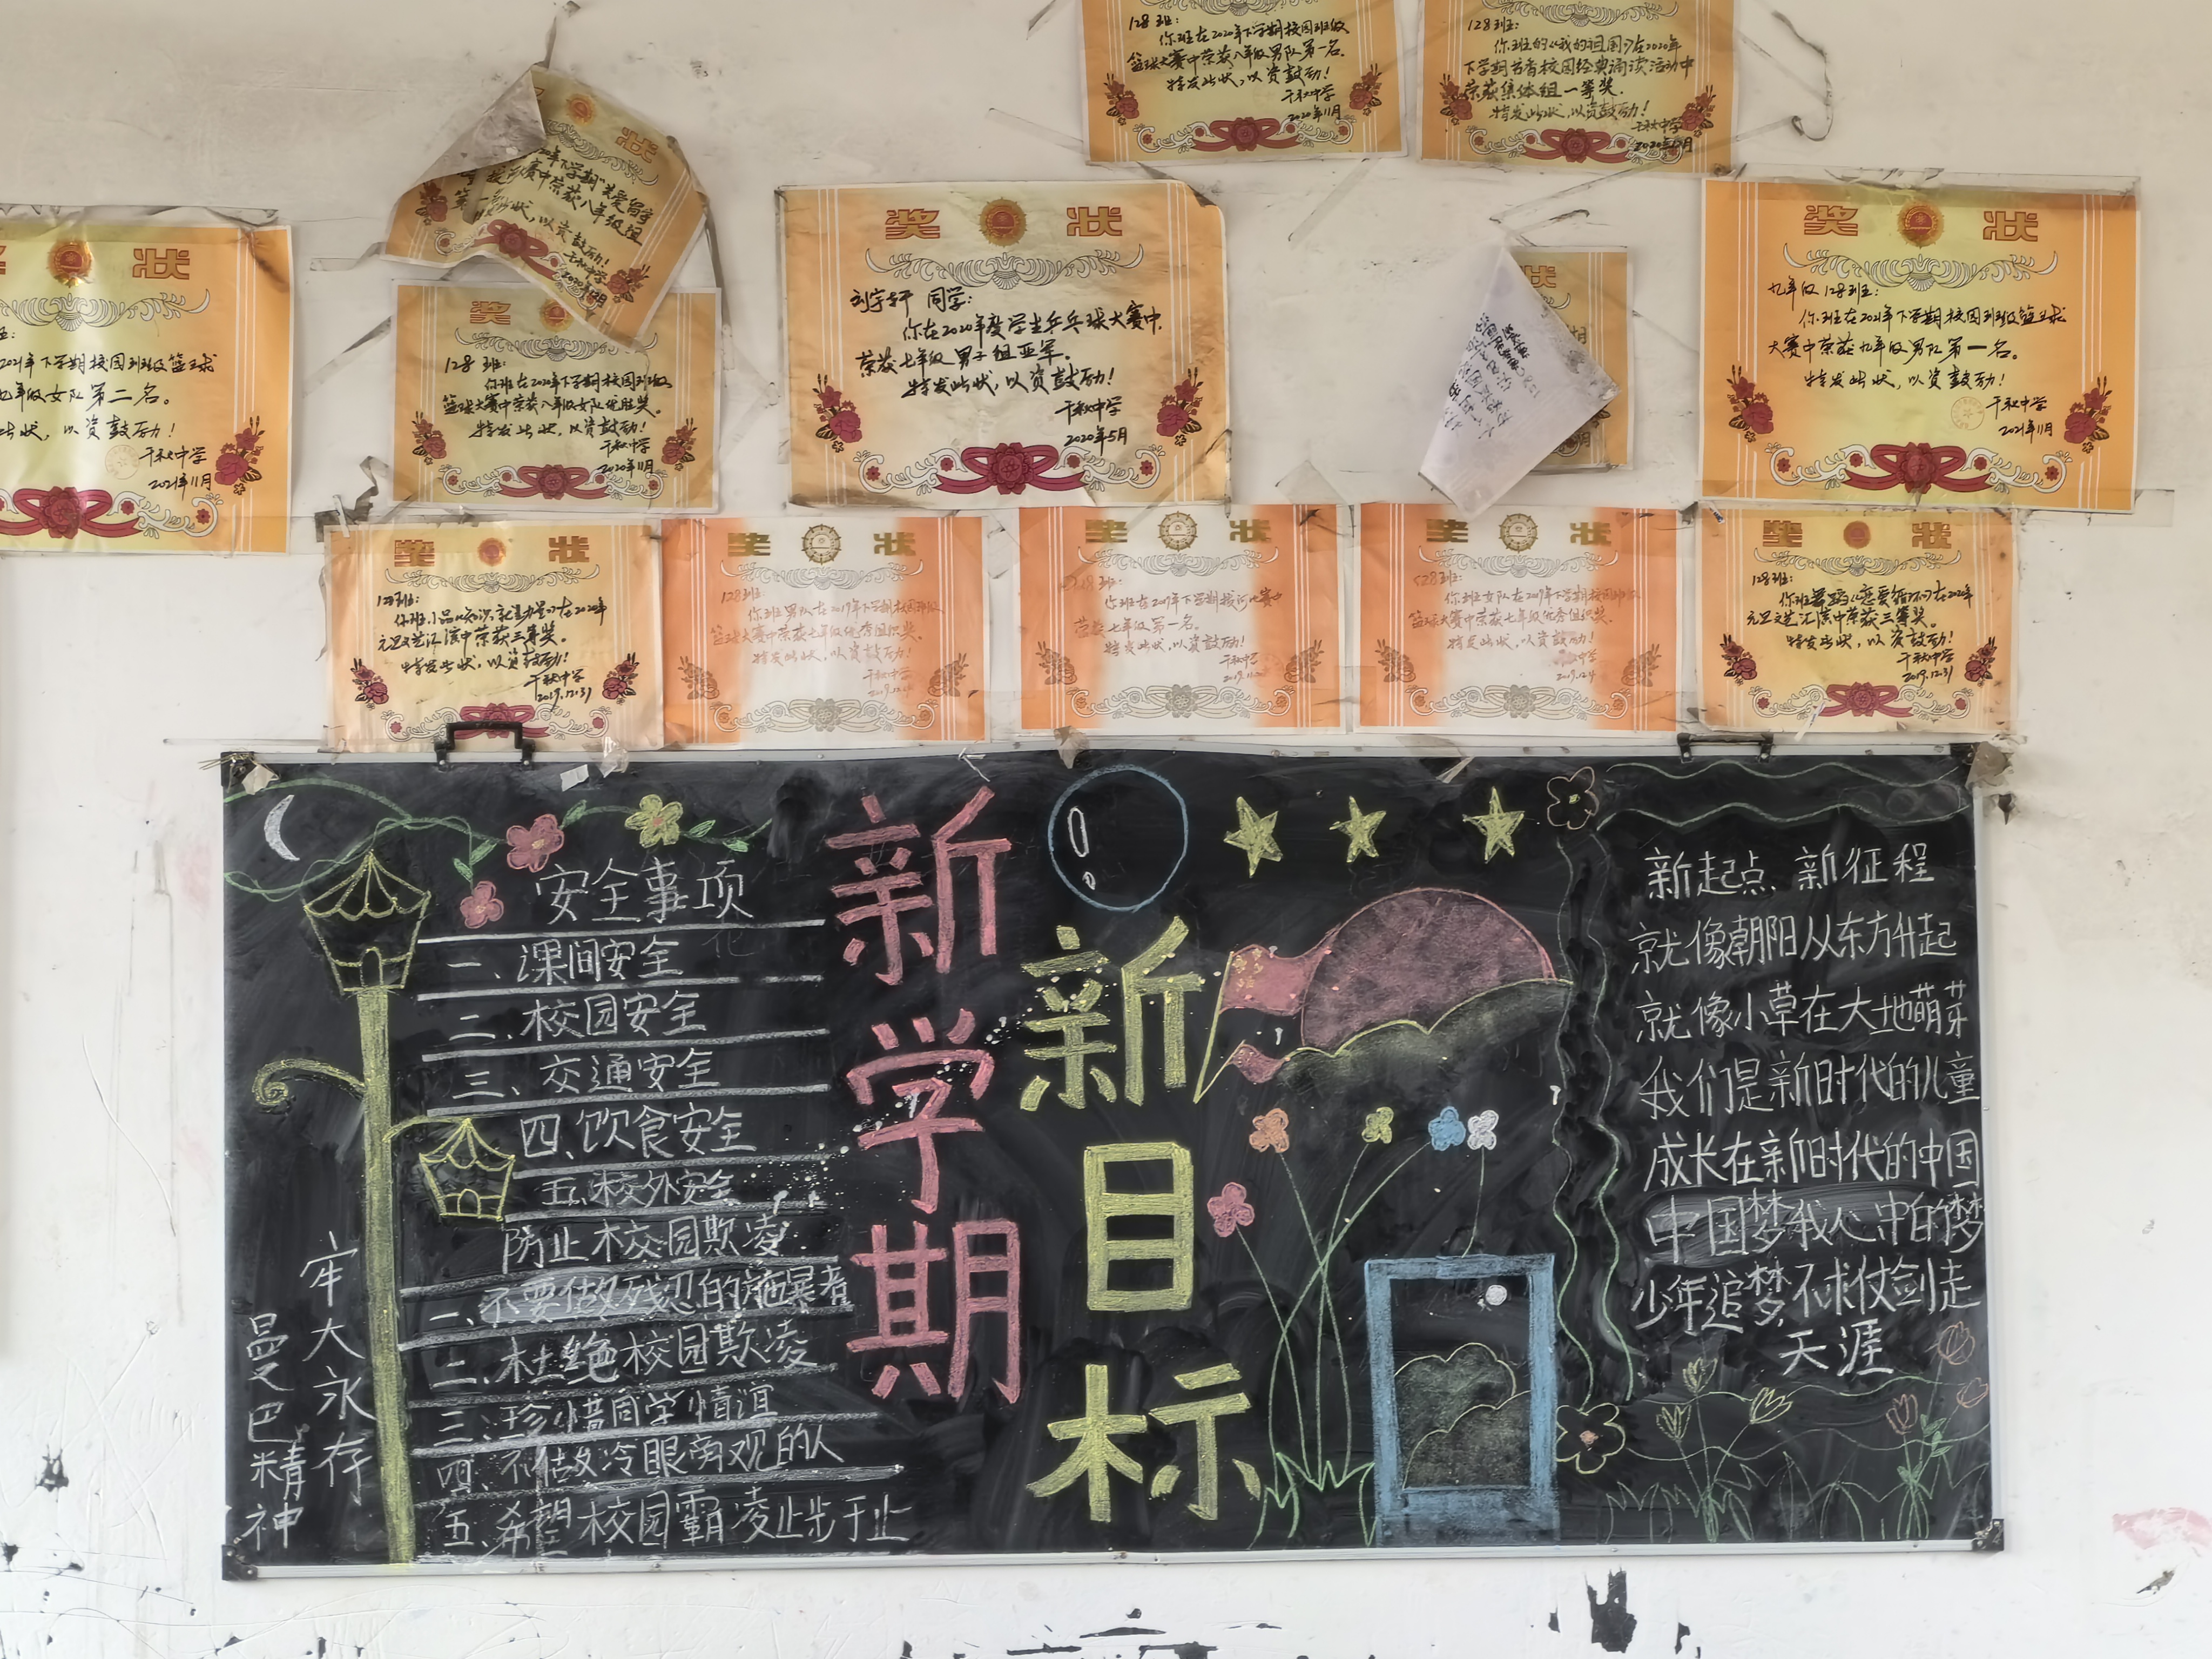 128班:
你班在2020年下学期校园班级
篮球大赛中荣获八年级男队第一名。
特发此状,以资鼓励!
千秋中学
2020年11月
128班:
你班的《我的祖国》在2020年
下学期书香校园经典诵读活动中
荣获集体组一等奖。
特发此状,以资鼓励!
千秋中学
状
年下学期"关爱留守
赛中荣获八年级组
第一
状,以资鼓励!
千秋中学
2020年12月
状
2021年下学期校园班级篮球
九年级女队第二名。
此状,以资鼓励!
千秋中学
2021年11月
奖
128班:
你班在2020年下学期校园班级
篮球大赛中荣获八年级女队优胜奖。
特发此状,以资鼓励!
千秋中学
2020年11月
奖 状
刘宇轩 同学:
你在2020年度学生乒乓球大赛中,
荣获七年级男子组亚军。
特发此状,以资鼓励!
千秋中学
2020年5月
状
奖 状
九年级128班:
你班在2021年下学期校园班级篮球
大赛中荣获九年级男队第一名。
特发此状,以资鼓励!
千秋中学
2021年11月
奖 状
128班:
你班小品《知识就是力量》在2020年
元旦文艺汇演中荣获三等奖。
特发此状,以资鼓励!
千秋中学
2019.12.31
奖 状
128班:
你班男队在2019年下学期校园班级
篮球大赛中荣获七年级优秀组织奖。
特发此状,以资鼓励!
千秋中学
奖 状
128班:
你班在2019年下学期拔河比赛中
荣获七年级第一名。
特发此状,以资鼓励!
千秋中学
奖 状
128班:
你班女队在2019年下学期校园班级
篮球大赛中荣获七年级优秀组织奖。
特发此状,以资鼓励!
中学
2019.12.4
奖 状
128班:
你班舞蹈《恋爱循环》在2020年
元旦文艺汇演中荣获三等奖。
特发此状,以资鼓励!
千秋中学
2019.12.31
安全事项
一、课间安全
二、校园安全
三、交通安全
四、饮食安全
五、校外安全
防止校园欺凌
一、不要做残忍的施暴者
二、杜绝校园欺凌
三、珍惜同学情谊
四、不做冷眼旁观的人
五、希望校园霸凌止步于止
牢大永存
曼巴精神
新学期
新目标
新起点、新征程
就像朝阳从东方升起
就像小草在大地萌芽
我们是新时代的儿童
成长在新时代的中国
中国梦我心中的梦
少年追梦,不求仗剑走
天涯